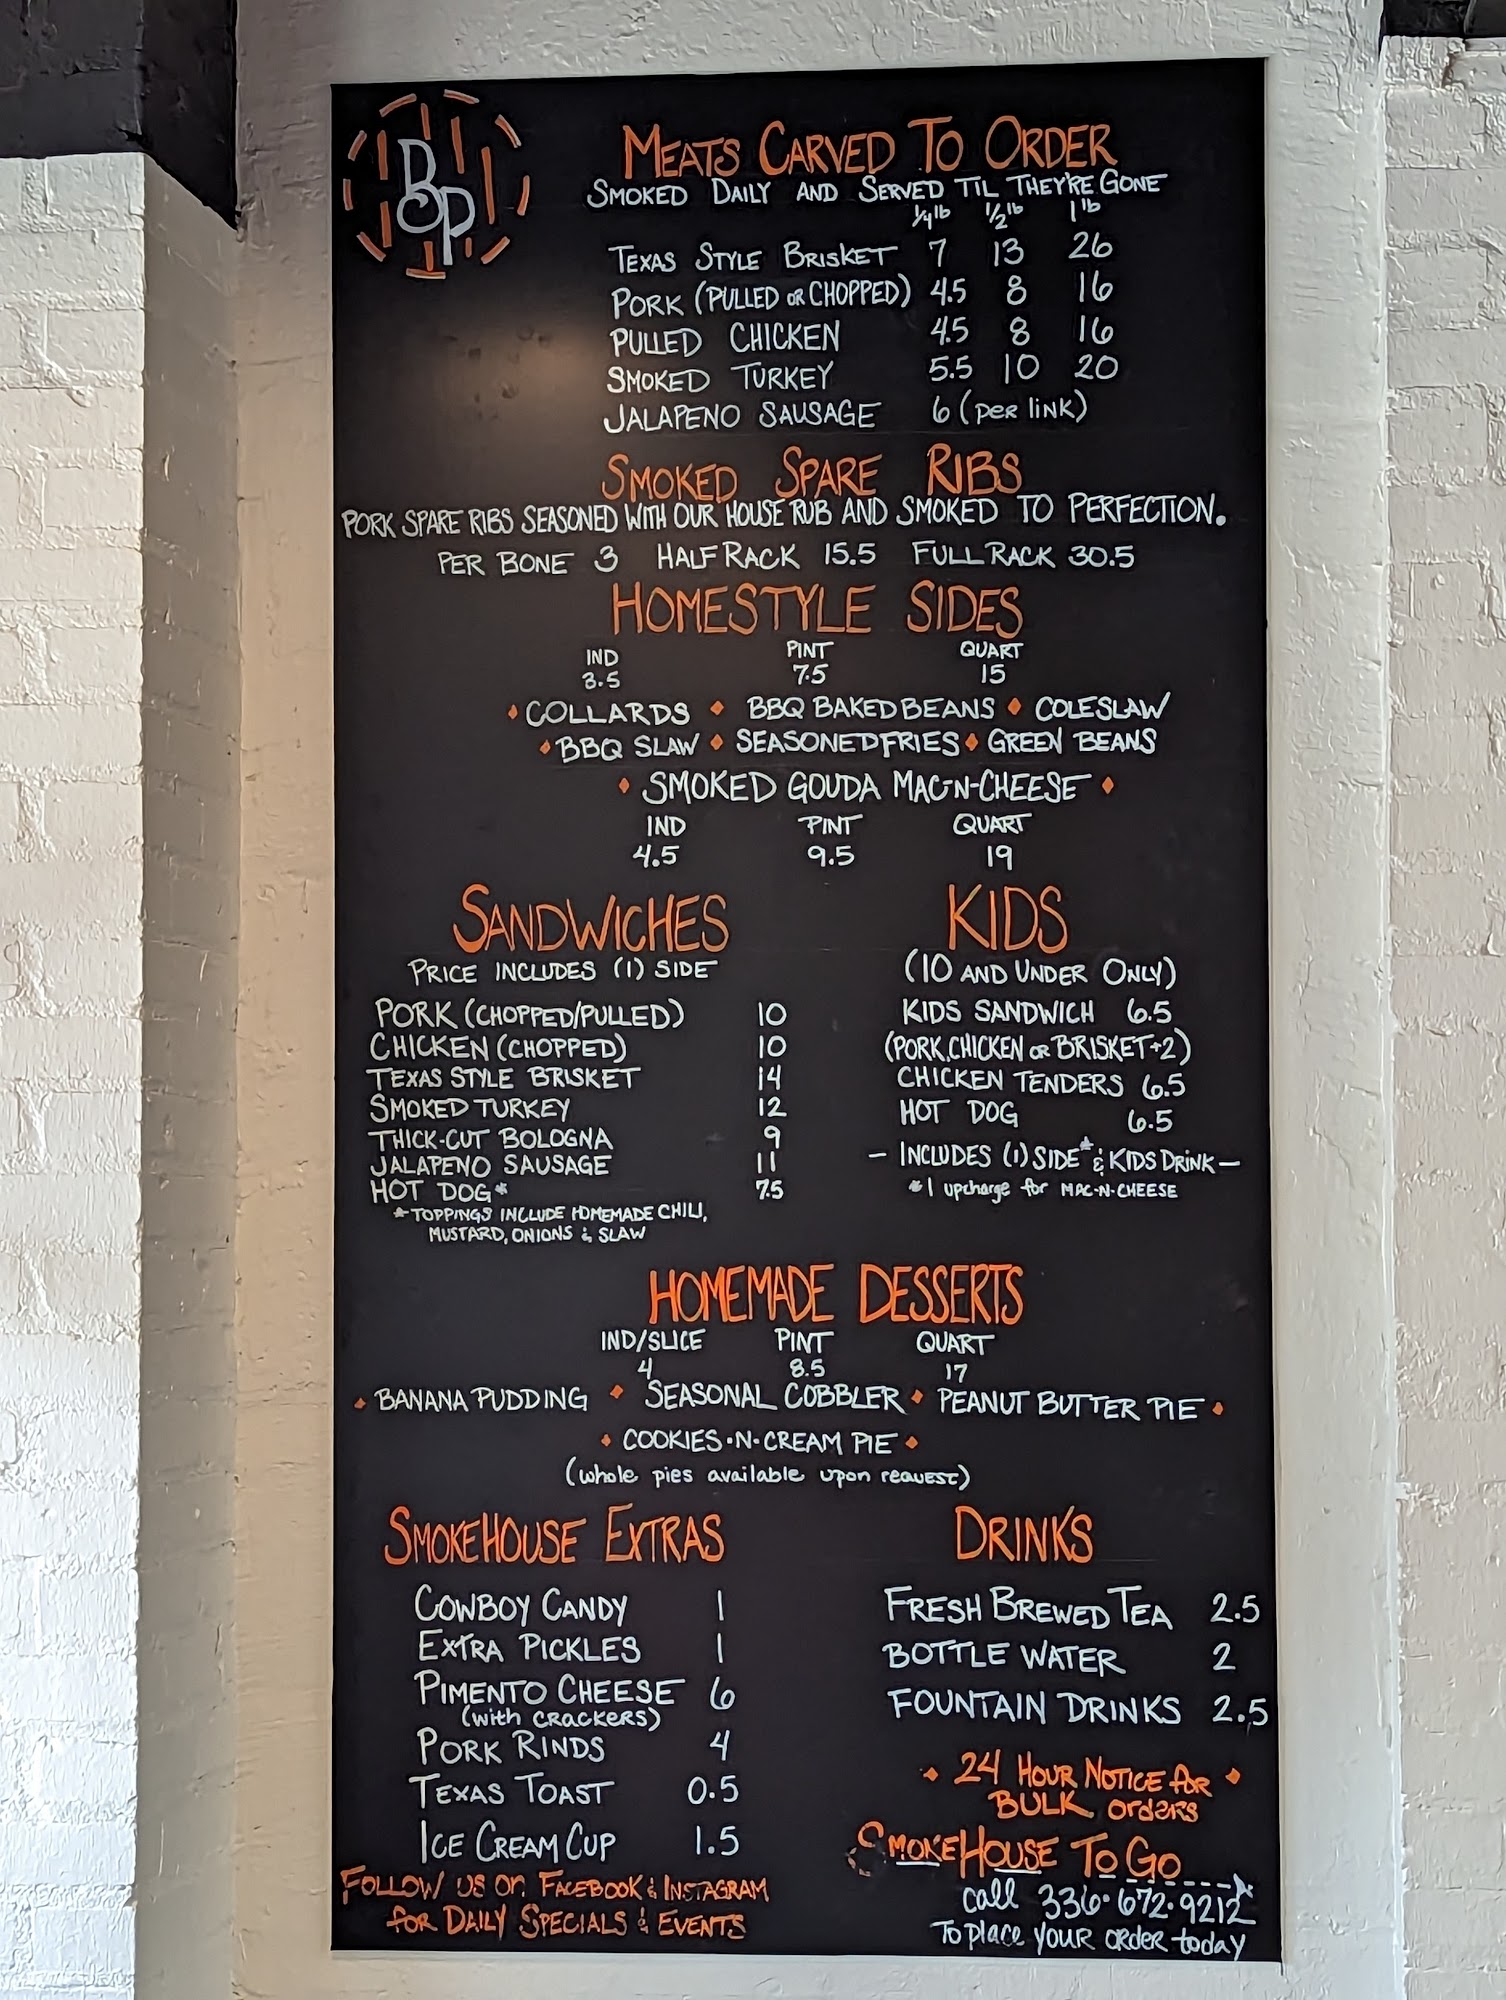 BOP
MEATS CARVED TO ORDER
SMOKED DAILY AND SERVED TIL THEY'RE GONE
1/4 lb 1/2 lb 1 lb
TEXAS STYLE BRISKET 7 13 26
PORK (PULLED OR CHOPPED) 4.5 8 16
PULLED CHICKEN 4.5 8 16
SMOKED TURKEY 5.5 10 20
JALAPENO SAUSAGE 6 (PER LINK)
SMOKED SPARE RIBS
PORK SPARE RIBS SEASONED WITH OUR HOUSE RUB AND SMOKED TO PERFECTION.
PER BONE 3 HALF RACK 15.5 FULL RACK 30.5
HOMESTYLE SIDES
IND PINT QUART
3.5 7.5 15
• COLLARDS • BBQ BAKED BEANS • COLESLAW
• BBQ SLAW • SEASONED FRIES • GREEN BEANS
• SMOKED GOUDA MAC-N-CHEESE •
IND PINT QUART
4.5 9.5 19
SANDWICHES
PRICE INCLUDES (1) SIDE
PORK (CHOPPED/PULLED) 10
CHICKEN (CHOPPED) 10
TEXAS STYLE BRISKET 14
SMOKED TURKEY 12
THICK-CUT BOLOGNA 9
JALAPENO SAUSAGE 11
HOT DOG* 7.5
*TOPPINGS INCLUDE HOMEMADE CHILI,
MUSTARD, ONIONS & SLAW
KIDS
(10 AND UNDER ONLY)
KIDS SANDWICH 6.5
(PORK, CHICKEN OR BRISKET+2)
CHICKEN TENDERS 6.5
HOT DOG 6.5
- INCLUDES (1) SIDE* & KIDS DRINK -
*1 upcharge for MAC-N-CHEESE
HOMEMADE DESSERTS
IND/SLICE PINT QUART
4 8.5 17
• BANANA PUDDING • SEASONAL COBBLER • PEANUT BUTTER PIE •
• COOKIES-N-CREAM PIE •
(whole pies available upon request)
SMOKEHOUSE EXTRAS
COWBOY CANDY 1
EXTRA PICKLES 1
PIMENTO CHEESE 6
(with crackers)
PORK RINDS 4
TEXAS TOAST 0.5
ICE CREAM CUP 1.5
FOLLOW US on FACEBOOK & INSTAGRAM
for DAILY SPECIALS & EVENTS
DRINKS
FRESH BREWED TEA 2.5
BOTTLE WATER 2
FOUNTAIN DRINKS 2.5
• 24 HOUR NOTICE for •
BULK orders
SMOKEHOUSE TO GO
call 336-672-9212
To place your order today